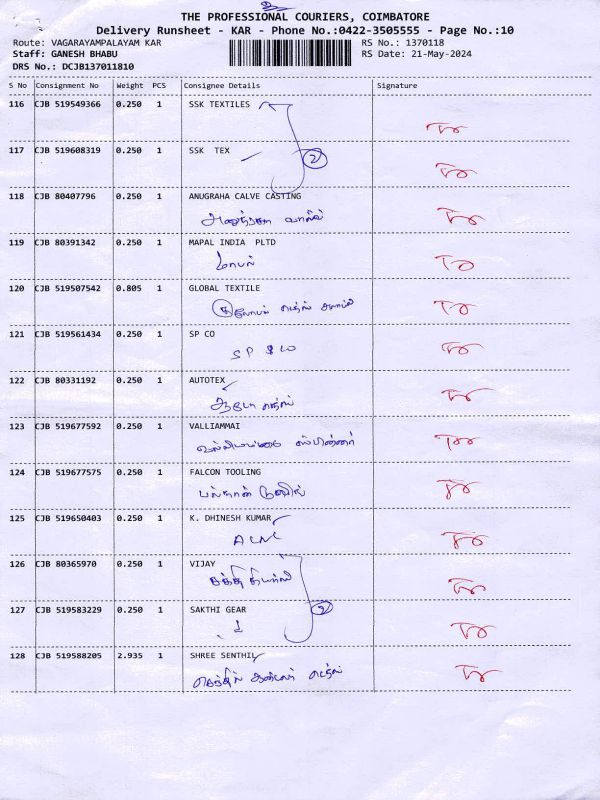 THE PROFESSIONAL COURIERS, COIMBATORE
Delivery Runsheet - KAR - Phone No.:0422-3505555 - Page No.:10
Route: VAGARAYAMPALAYAM KAR RS No.: 1370118
Staff: GANESH BHABU RS Date: 21-May-2024
DRS No.: DCJB137011810
S No Consignment No Weight PCS Consignee Details Signature
116 CJB 519549366 0.250 1 SSK TEXTILES
117 CJB 519608319 0.250 1 SSK TEX 2
118 CJB 80407796 0.250 1 ANUGRAHA CALVE CASTING
119 CJB 80391342 0.250 1 MAPAL INDIA PLTD
மாபல்
120 CJB 519507542 0.805 1 GLOBAL TEXTILE
121 CJB 519561434 0.250 1 SP CO
SP & CO
122 CJB 80331192 0.250 1 AUTOTEX
ஆட்டோ
123 CJB 519677592 0.250 1 VALLIAMMAI
124 CJB 519677575 0.250 1 FALCON TOOLING
125 CJB 519650403 0.250 1 K. DHINESH KUMAR
126 CJB 80365970 0.250 1 VIJAY
சக்தி கியர்
127 CJB 519583229 0.250 1 SAKTHI GEAR 2
128 CJB 519588205 2.935 1 SHREE SENTHIL